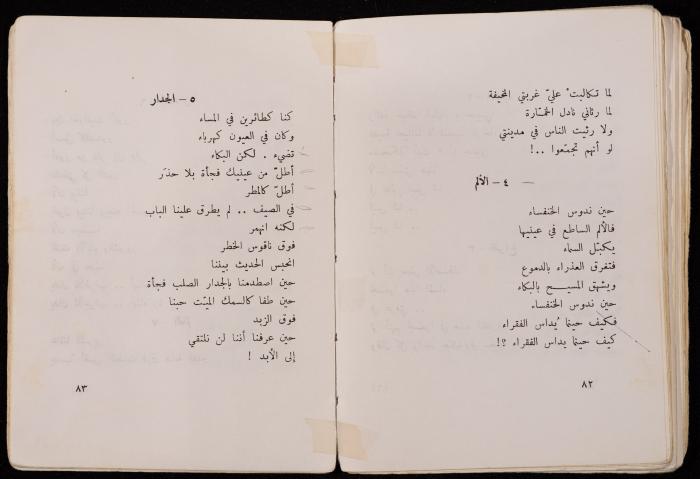 لما تكالبتْ عليّ غربتي المخيفة
لما رثاني نادل الخمّارة
ولا رثيت الناس في مدينتي
لو أنهم تجمّعوا ..!
٤ – الألم
حين ندوس الخنفساء
فالألم الساطع في عينيها
يكبّل السماء
فتغرق العذراء بالدموع
ويشهق المسيح بالبكاء
حين ندوس الخنفساء
فكيف حينما يُداس الفقراء
كيف حينما يداس الفقراء ؟!
٨٢
٥ – الجدار
كنا كطائرين في المساء
وكان في العيون كهرباء
تضيء . لكن البكاء
أطلّ من عينيك فجأة بلا حذر
أطلّ كالمطر
في الصيف .. لم يطرق علينا الباب
لكنه انهمر
فوق ناقوس الخطر
انحبس الحديث بيننا
حين اصطدمنا بالجدار الصلب فجأة
حين طفا كالسمك الميّت حبنا
فوق الزبد
حين عرفنا أننا لن نلتقي
إلى الأبد !
٨٣